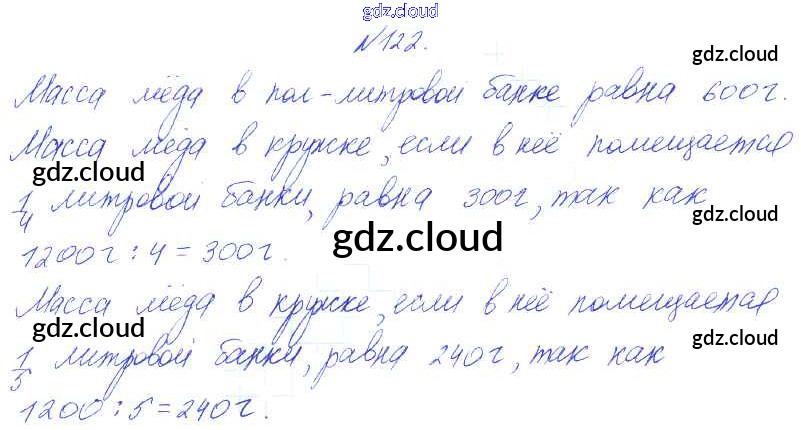 gdz.cloud
№122.
gdz.cloud
Масса мёда в пол-литровой банке равна 600г.
gdz.cloud
Масса мёда в кружке, если в неё помещается
gdz.cloud
1/4 литровой банки, равна 300г, так как
gdz.cloud
1200г : 4 = 300г.
gdz.cloud
Масса мёда в кружке, если в неё помещается
gdz.cloud gdz.cloud
1/5 литровой банки, равна 240г, так как
1200 : 5 = 240г.